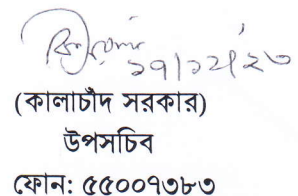 ১৭/১২/২৩
(কালাচাঁদ সরকার)
উপসচিব
ফোন: ৫৫০০৭৩৮৩